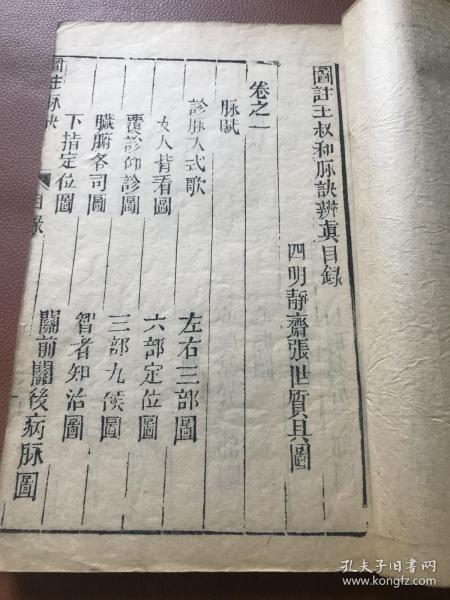 圖註王叔和脉訣辨真目録
四明靜齋張世質具圖
卷之一
脉賦
診脉入式歌
左右三部圖
女人背看圖
六部定位圖
覆診仰診圖
三部九候圖
臟腑各司圖
智者知治圖
下指定位圖
關前關後病脉圖
圖註脉訣
目錄
孔夫子旧书网
www.kongfz.com